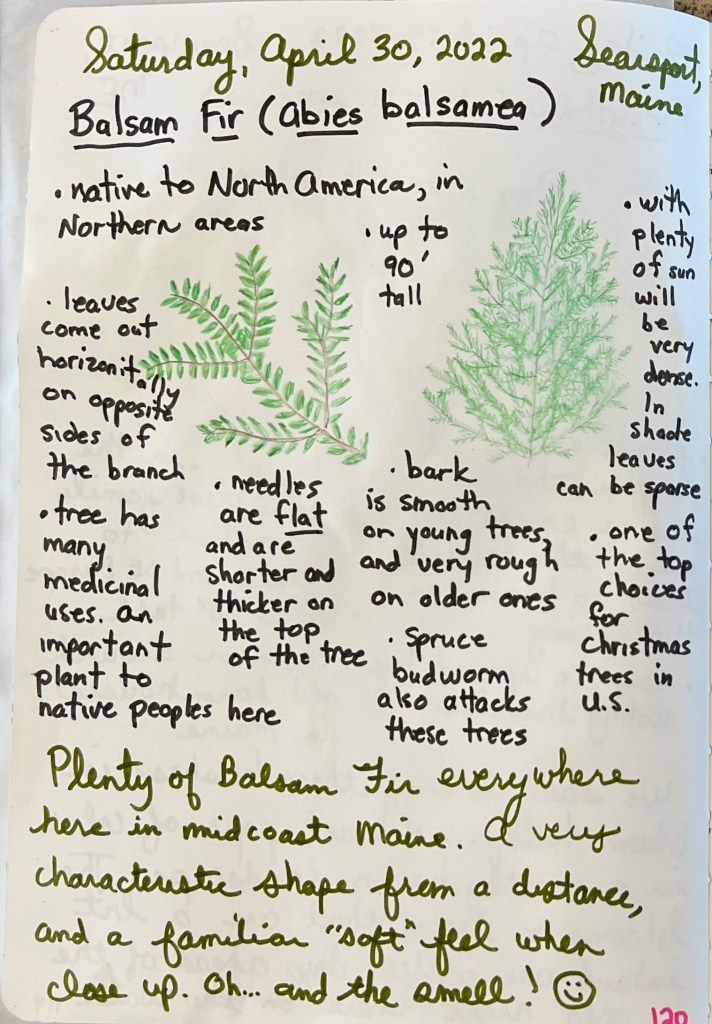 Saturday, April 30, 2022
Searsport,
Maine
Balsam Fir (Abies balsamea)
• native to North America, in
Northern areas
• up to
90'
tall
• with
plenty
of sun
will
be
very
dense.
In
shade
leaves
can be sparse
• leaves
come out
horizontally
on opposite
sides of
the branch
• tree has
many
medicinal
uses. An
important
plant to
native peoples here
• needles
are flat
and are
shorter and
thicker on
the top
of the tree
• bark
is smooth
on young trees,
and very rough
on older ones
• Spruce
budworm
also attacks
these trees
• one of
the top
choices
for
Christmas
trees in
U.S.
Plenty of Balsam Fir everywhere
here in midcoast Maine. A very
characteristic shape from a distance,
and a familiar "soft" feel when
close up. Oh... and the smell! ☺
120